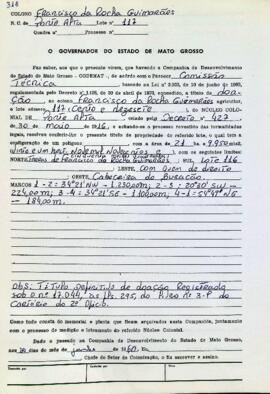 318
COLONO Francisco da Rocha Guimarães
N. C. de Ponte Alta Lote n.º 117
Quadra n.º Processo n.º
O GOVERNADOR DO ESTADO DE MATO GROSSO
Faz saber, aos que o presente virem, que havendo a Companhia de Desenvolvimento
do Estado de Mato Grosso - CODEMAT - de acôrdo com o Parecer Comissão
Técnica
regulamentada pelo Decreto de abril de 1970, concedido, a título de doa-
ção, ao colono Francisco da Rocha Guimarães agricultor,
o lote número, 117 cento e dezesete, do NÚCLEO COLO-
NIAL DE Ponte Alta criado pelo Decreto n.º 427
de 30 de maio de 916, e achando-se o processo revestido das formalidades
legais, resolveu conferir-lhe o presente título de propriedade do referido lote, o qual tem a
configuração de um polígono com a área de 21 ha 9.950 m2.
com os seguintes limites:
NORTE, terras de Francisco da Rocha Guimarães; SUL, Lote 116
; LESTE, com quem de direito
; OESTE,
Cabeceira do Buracão.
MARCOS 1-2 = 34º21' NW - 1.230,00m; 2-3 = 20º30' SW -
224,00m; 3-4 = 34º21' SE -
184,00m.
OBS: Título definitivo de doação Registrado
sob o nº 17.044, às fls. 295, do livro nº 3-P do
Cartório do 2º Ofício.
Como tudo consta do memorial e planta que ficam arquivados nesta Companhia, juntamente
com o processo de medição e loteamento do referido Núcleo Colonial.
Dado e passado na Companhia de Desenvolvimento do Estado de Mato Grosso,
aos dias do mês de junho de 1960. Eu
Chefe do Setor de Colonização, o fiz escrever e assino.